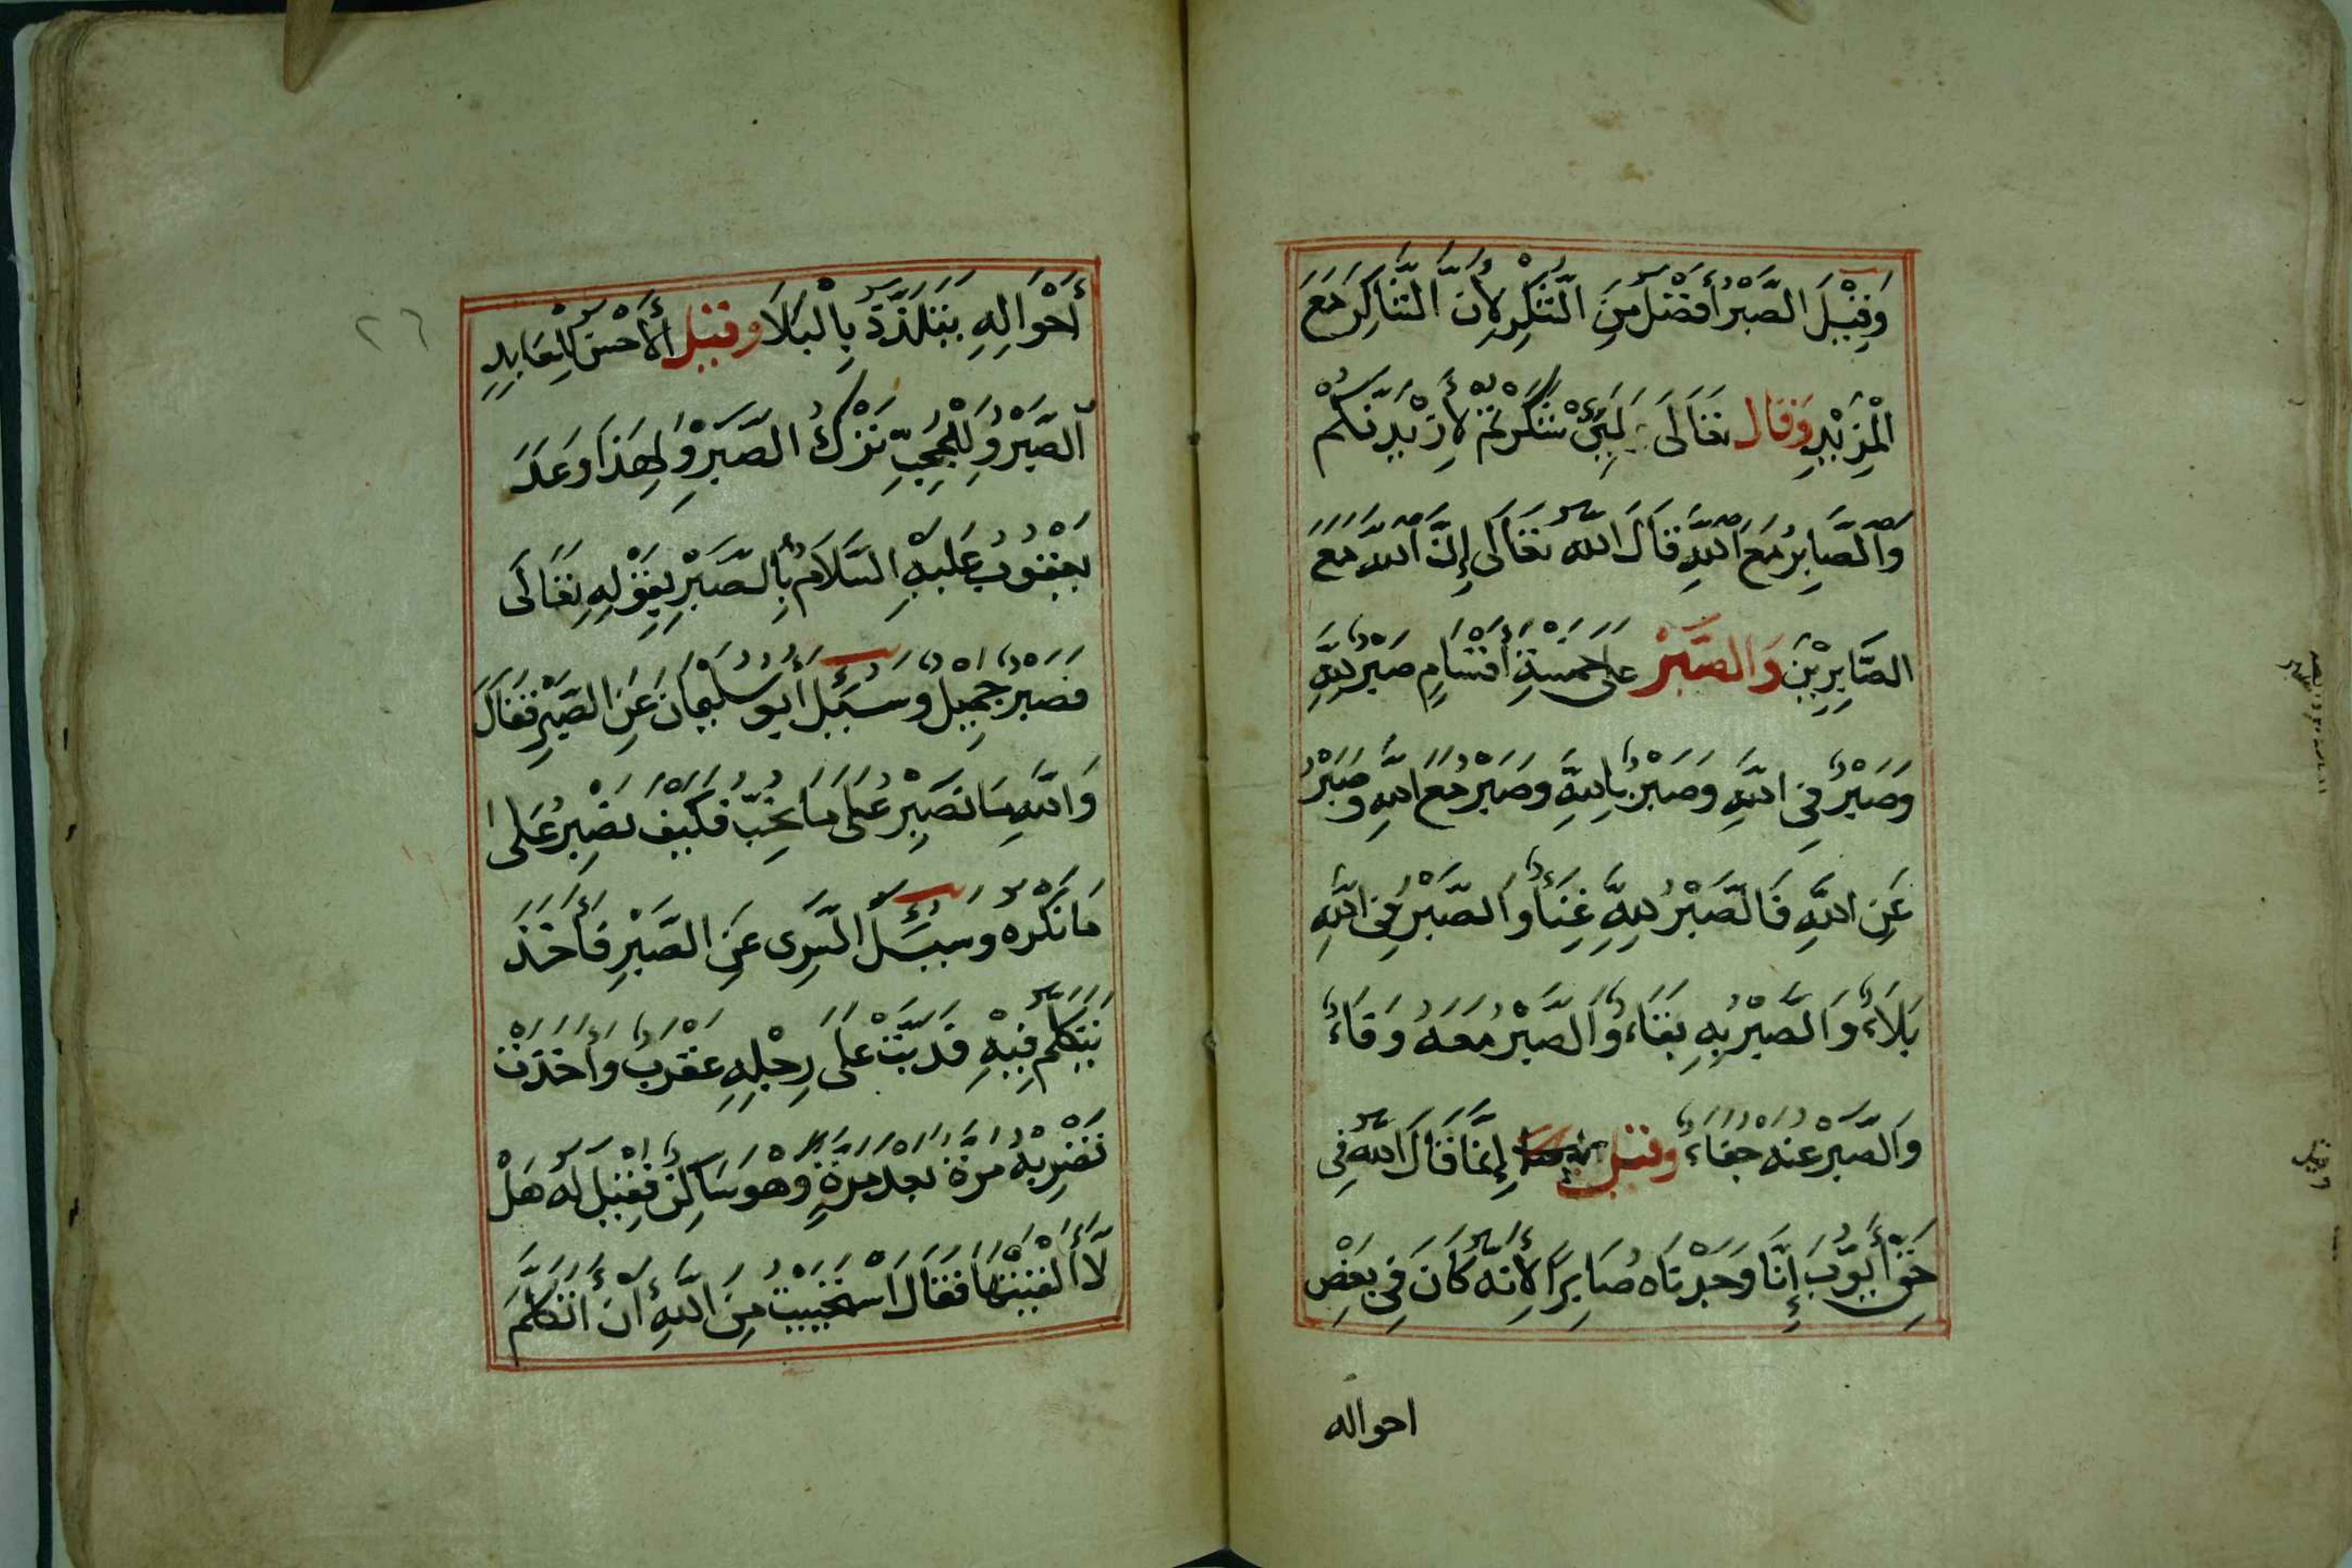 وَقِيْلَ الصَّبْرُ أَفْضَلُ مِنَ الشُّكْرِ لِأَنَّ الشَّاكِرَ مَعَ
الْمَزِيْدِ وَقَالَ تَعَالَى لَئِنْ شَكَرْتُمْ لَأَزِيْدَنَّكُمْ
وَالصَّابِرُ مَعَ اللَّهِ قَالَ اللَّهُ تَعَالَى إِنَّ اللَّهَ مَعَ
الصَّابِرِيْنَ وَالصَّبْرُ عَلَى خَمْسَةِ أَقْسَامٍ صَبْرٌ لِلَّهِ
وَصَبْرٌ فِي اللَّهِ وَصَبْرٌ بِاللَّهِ وَصَبْرٌ مَعَ اللَّهِ وَصَبْرٌ
عَنِ اللَّهِ فَالصَّبْرُ لِلَّهِ غِنَاءٌ وَالصَّبْرُ فِي اللَّهِ
بَلَاءٌ وَالصَّبْرُ بِهِ بَقَاءٌ وَالصَّبْرُ مَعَهُ وَفَاءٌ
وَالصَّبْرُ عَنْهُ جَفَاءٌ وقيل إِنَّمَا قَالَ اللَّهُ فِي
حَقِّ أَيُّوْبَ إِنَّا وَجَدْنَاهُ صَابِرًا لِأَنَّهُ كَانَ فِي بَعْضِ
احواله
٢٦
أَحْوَالِهِ يَتَلَذَّذُ بِالْبَلَا وقيل الأَحْسَنُ لِلْعَابِدِ
الصَّبْرُ وَلِلْمُحِبِّ تَرْكُ الصَّبْرِ وَلِهَذَا وَعَدَ
يَعْقُوْبُ عَلَيْهِ السَّلَامُ بِالصَّبْرِ بِقَوْلِهِ تَعَالَى
فَصَبْرٌ جَمِيْلٌ وَسُئِلَ أَبُو سُلَيْمَانَ عَنِ الصَّبْرِ فَقَالَ
وَاللَّهِ مَا نَصْبِرُ عَلَى مَا نُحِبُّ فَكَيْفَ نَصْبِرُ عَلَى
مَا نَكْرَهُ وَسُئِلَ السَّرِي عَنِ الصَّبْرِ فَأَخَذَ
يَتَكَلَّمُ فِيْهِ فَدَبَّتْ عَلَى رِجْلِهِ عَقْرَبٌ وَأَخَذَتْ
تَضْرِبُهُ مَرَّةً بَعْدَ مَرَّةٍ وَهُوَ سَاكِنٌ فَقِيْلَ لَهُ هَلْ
لَا أَلْقَيْتَهَا فَقَالَ اسْتَحْيَيْتُ مِنَ اللَّهِ أَنْ أَتَكَلَّمَ